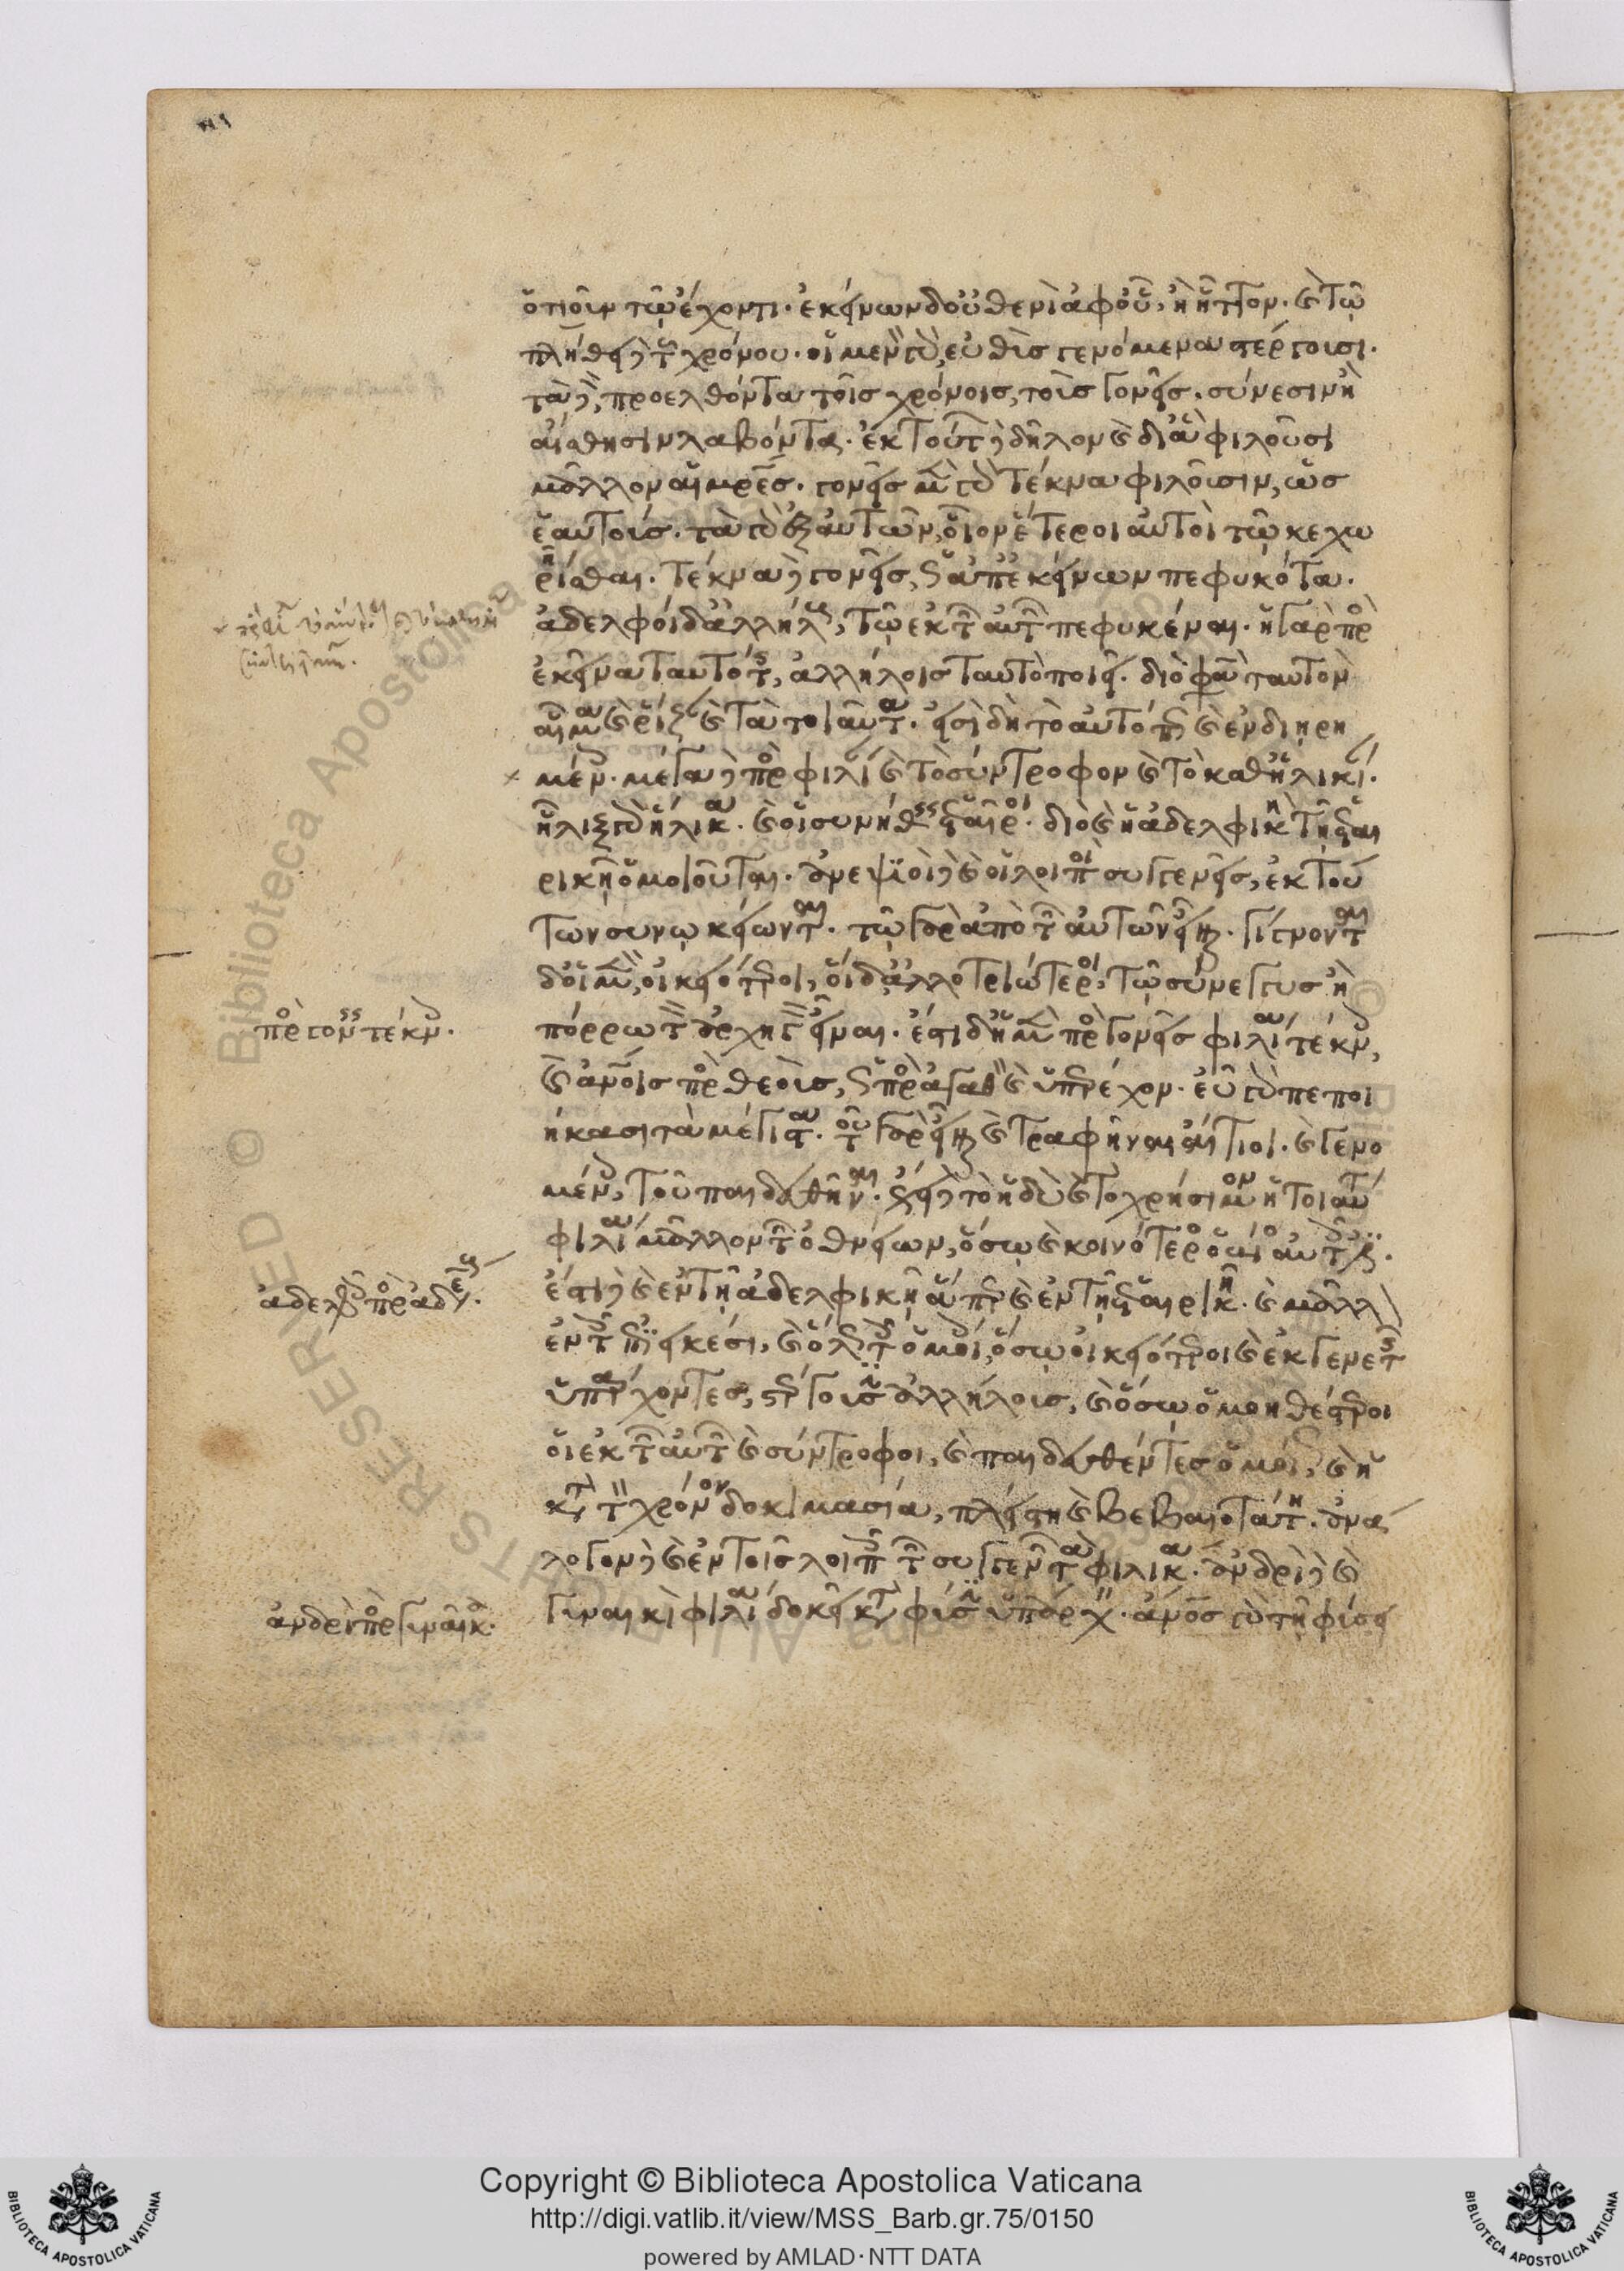 ὁτιοῦν τῷ ἔχοντι· ἐκείνων δ' οὐθενὶ ἀφ' οὗ, ἢ ἧττον· καὶ τῷ
πλήθει δὲ τοῦ χρόνου· οἱ μὲν γὰρ, εὐθὺς γενόμενα στέργουσι·
τὰ δὲ, προελθόντα τοῖς χρόνοις, τοὺς γονεῖς, σύνεσιν ἢ
αἴσθησιν λαβόντα· ἐκ τούτων δὲ δῆλον καὶ δι' ἃ φιλοῦσι
μᾶλλον αἱ μητέρες· γονεῖς μὲν γὰρ τέκνα φιλοῦσιν, ὡς
ἑαυτούς· τὰ γὰρ ἐξ αὐτῶν, οἷον ἕτεροι αὐτοὶ τῷ κεχω
ρίσθαι· τέκνα δὲ γονεῖς, ὡς ἀπ' ἐκείνων πεφυκότα·
ἀδελφοὶ δ' ἀλλήλους, τῷ ἐκ τῶν αὐτῶν πεφυκέναι· ἡ γὰρ πρὸς
ἐκεῖνα ταυτότης, ἀλλήλοις ταυτὸ ποιεῖ· διὸ φασὶ ταυτὸν
αἷμα καὶ ῥίζαν καὶ τὰ τοιαῦτα· εἰσὶ δὴ τὸ αὐτό πως καὶ ἐν διῃρη
μένοις· μέγα δὲ πρὸς φιλίαν καὶ τὸ σύντροφον καὶ τὸ καθ' ἡλικίαν·
ἧλιξ γὰρ ἥλικα· καὶ οἱ συνήθεις ἑταῖροι· διὸ καὶ ἡ ἀδελφικὴ τῇ ἑται
ρικῇ ὁμοιοῦται· ἀνεψιοὶ δὲ καὶ οἱ λοιποὶ συγγενεῖς, ἐκ τού
των συνῳκείωνται· τῷ γὰρ ἀπὸ τῶν αὐτῶν εἶναι· γίγνονται
δ' οἱ μὲν, οἰκειότεροι, οἱ δ' ἀλλοτριώτεροι, τῷ σύνεγγυς ἢ
πόρρω τὸν ἀρχηγὸν εἶναι· ἔστι δ' ἡ μὲν πρὸς γονεῖς φιλία τέκνοις,
καὶ ἀνθρώποις πρὸς θεοὺς, ὡς πρὸς ἀγαθὸν καὶ ὑπερέχον· εὖ γὰρ πεποι
ήκασι τὰ μέγιστα· τοῦ γὰρ εἶναι καὶ τραφῆναι αἴτιοι· καὶ γενο
μένοις, τοῦ παιδευθῆναι· ἔχει δὲ τὸ ἡδὺ καὶ τὸ χρήσιμον ἡ τοιαύτη
φιλία μᾶλλον τῶν ὀθνείων, ὅσῳ καὶ κοινότερος ὁ βίος αὐτοῖς ἐστιν·
ἔστι δὲ καὶ ἐν τῇ ἀδελφικῇ ἅπερ καὶ ἐν τῇ ἑταιρικῇ· καὶ μᾶλλον
ἐν τοῖς ἐπιεικέσι, καὶ ὅλως τοῖς ὁμοίοις, ὅσῳ οἰκειότεροι καὶ ἐκ γενετῆς
ὑπάρχοντες, στέργουσιν ἀλλήλους, καὶ ὅσῳ ὁμοηθέστεροι
οἱ ἐκ τῶν αὐτῶν καὶ σύντροφοι, καὶ παιδευθέντες ὁμοίως, καὶ ἡ
κατὰ τὸν χρόνον δοκιμασία, πλείστη καὶ βεβαιοτάτη· ἀνά
λογον δὲ καὶ ἐν τοῖς λοιποῖς τῶν συγγενῶν τὰ φιλικά· ἀνδρὶ δὲ καὶ
γυναικὶ φιλία δοκεῖ κατὰ φύσιν ὑπάρχειν· ἄνθρωπος γὰρ τῇ φύσει
πρὸς γονεῖς τέκνοις·
ἀδελφοῖς πρὸς ἀδελφούς·
ἀνδρὶ πρὸς γυναῖκα·
Copyright © Biblioteca Apostolica Vaticana
http://digi.vatlib.it/view/MSS_Barb.gr.75/0150
powered by AMLAD·NTT DATA
BIBLIOTECA APOSTOLICA VATICANA
BIBLIOTECA APOSTOLICA VATICANA